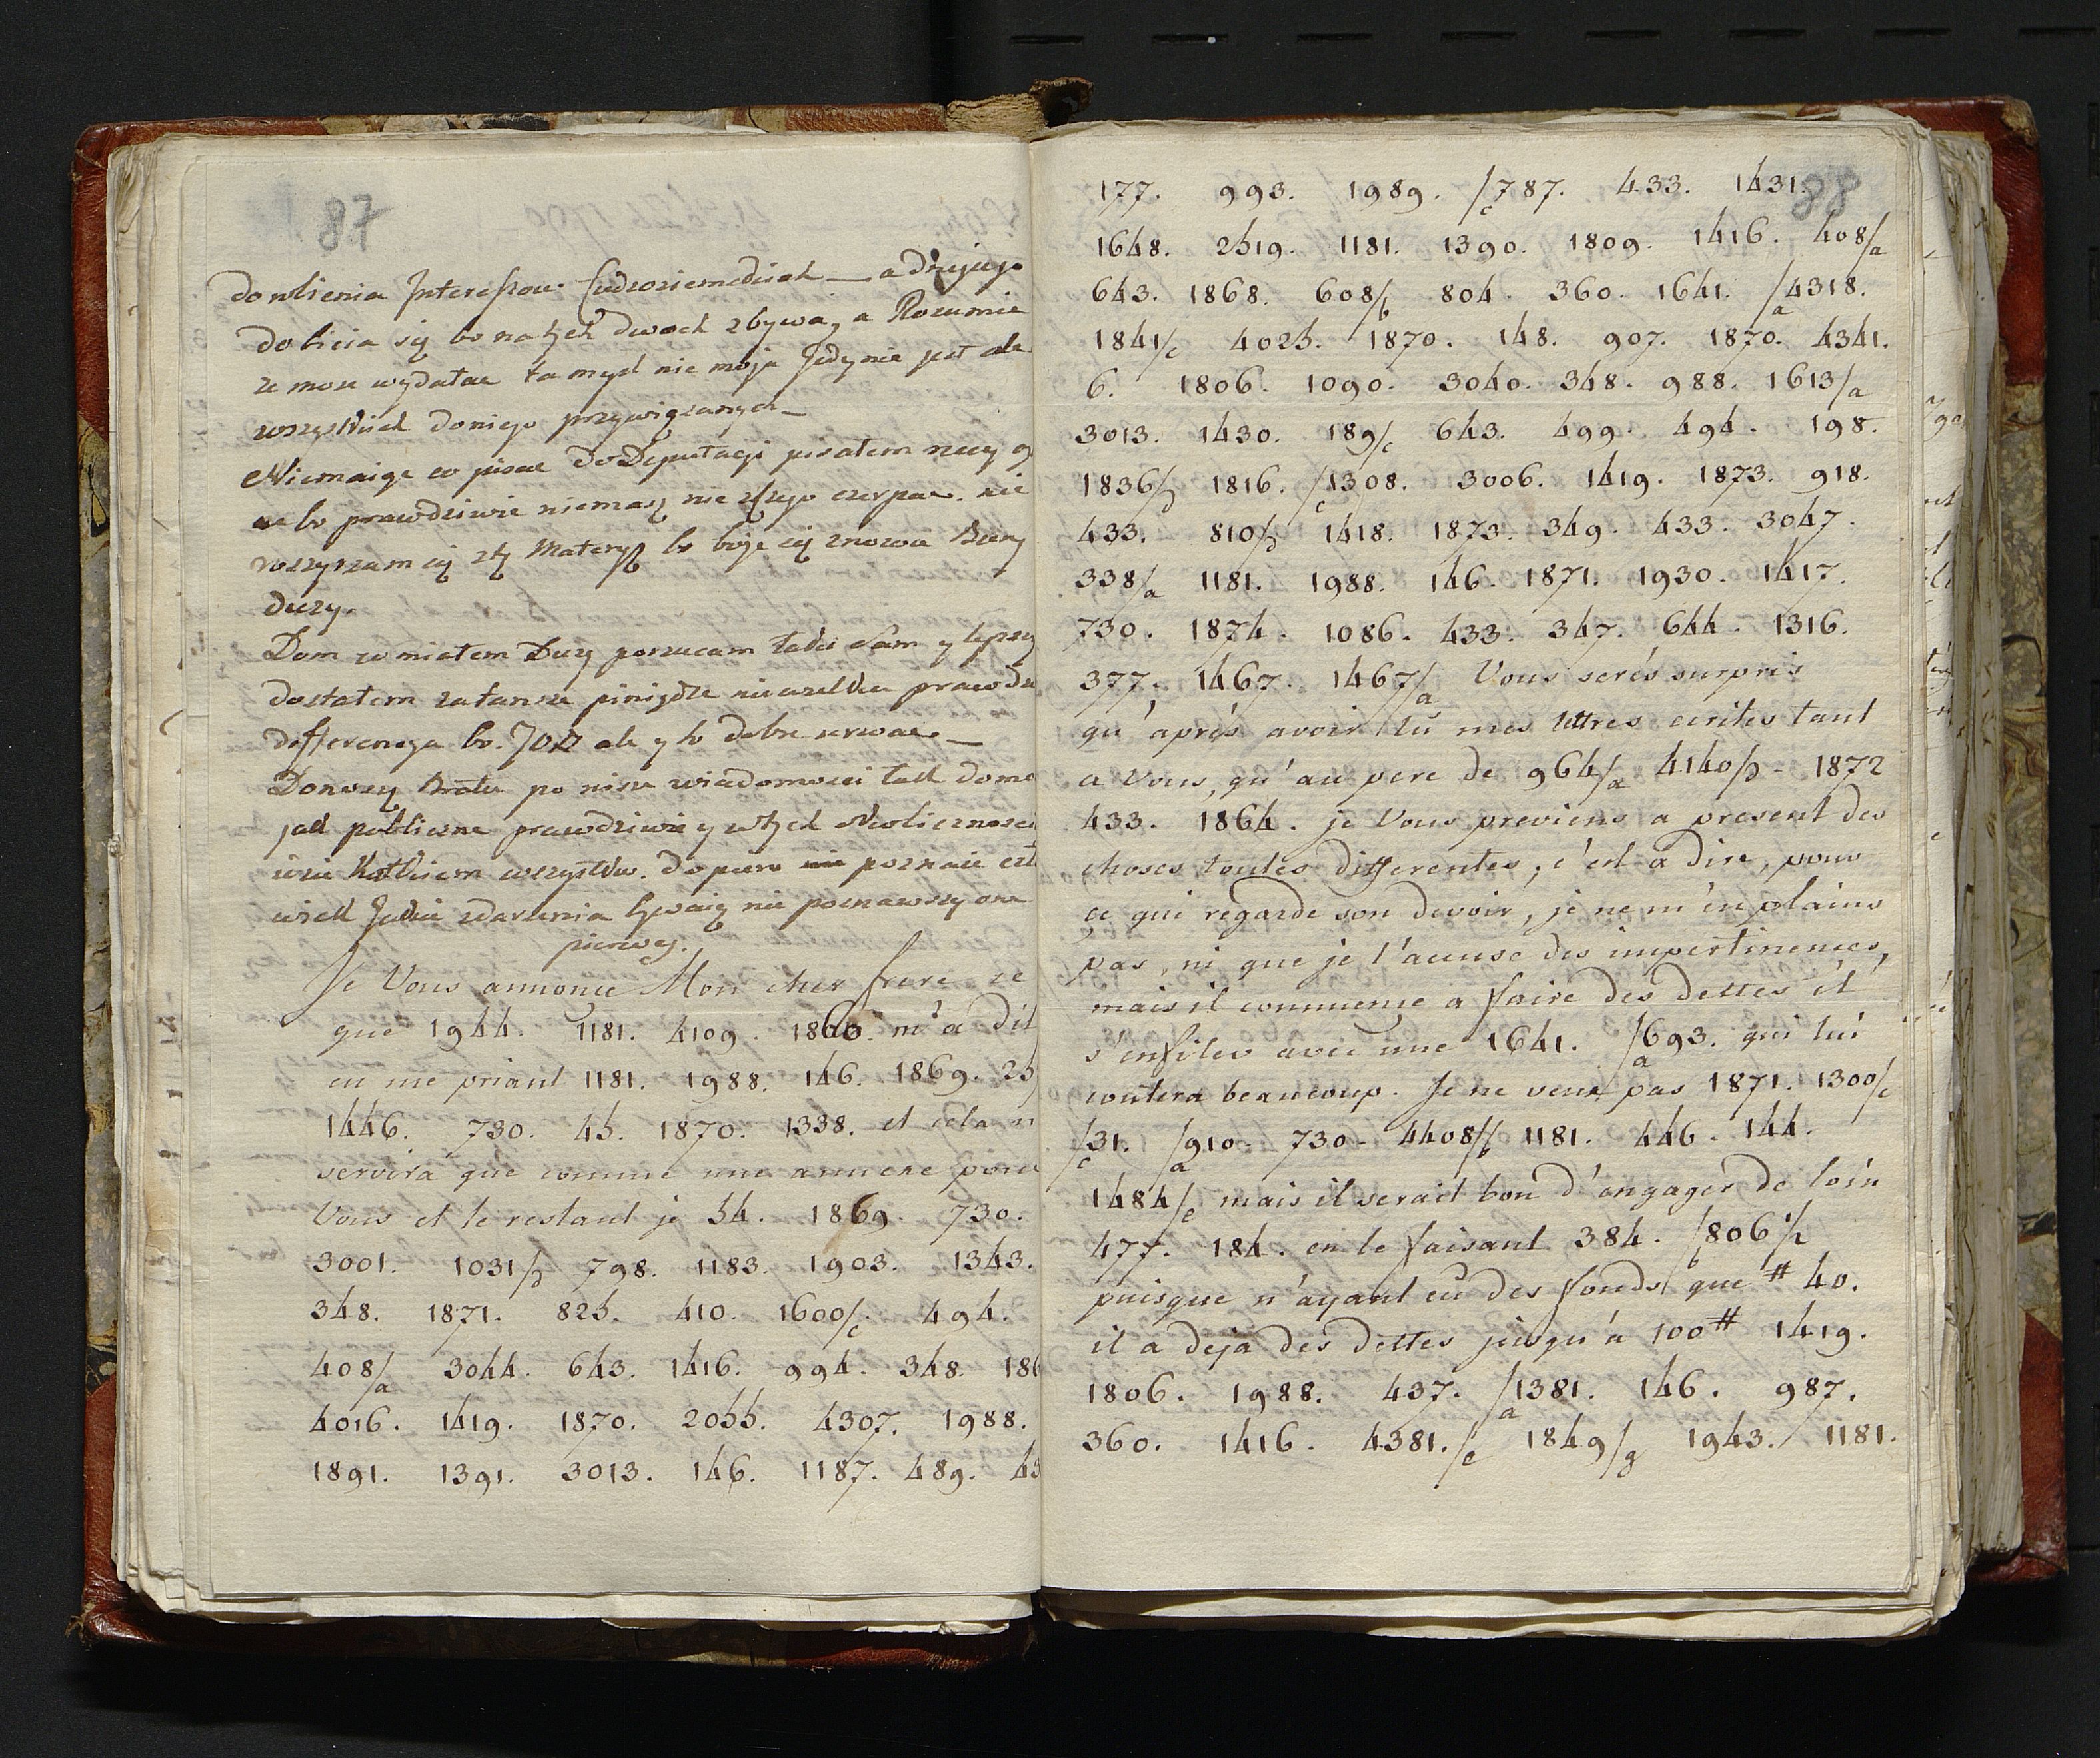 87
dowlienia Interessow Cudzoziemskich — a drugiego
do bicia się bo na tych dwoch zbywa, a Rozumie
ze moze wydatae ta mysl nie moja Jedynie jest ale
wszystkich do niego przywiązanych —
Niemaiąc co pisac do Deputacyi pisałem
bo prawdziwie niemasz nic z czego czerpac. nie
się z tą Materyą bo boje się znowu Bury
duzy.
Dom w miałem Duzy porzucam taki Sam y lepszy
dostałem za tansze piniądze niewielka prawda
differencya bo. 70# ale y to dobre urwac —
Donoszę Bratu po nisze wiadomosci tak dome
jak publiczne prawdziwie y w tych okolicznosci
wszystko. dopiero poznaie czł
wiek Jakie zdarzenia bywaią nie poznawszy one
pierwey.
Je Vous annonce Mon cher frere ce
que 1944. 1181. 4109. 1860. m'a dit
en me priant 1181. 1988. 146. 1869. 25
1446. 730. 45. 1870. 1338. et cela n
servira que comme une annexe pour
Vous et le restant je 54. 1869. 730.
3001. 1031/d 798. 1183. 1903. 1343.
348. 1871. 825. 410. 1600/c. 494.
408/a 3044. 643. 1416. 994. 348. 186
4016. 1419. 1870. 2055. 4307. 1988.
1891. 1391. 3013. 146. 1187. 489. 43
88
177. 993. 1989. /c787. 433. 1431.
1648. 2519. 1181. 1390. 1809. 1416. 408/a
643. 1868. 608/b 804. 360. 1641. /a4318.
1841/c 4025. 1870. 148. 907. 1870. 4341.
6. 1806. 1090. 3040. 348. 988. 1613/a
3013. 1430. 189/c 643. 499. 494. 198.
1836/d 1816. /c1308. 3006. 1419. 1873. 918.
433. 810/d 1418. 1873. 349. 433. 3047.
338/a 1181. 1988. 146. 1871. 1930. 1417.
730. 1874. 1086. 433. 347. 644. 1316.
377. 1467. 1467/a Vous serés surpris
qu'aprés avoir lû mes lettres ecrites tant
a Vous, qu'au pere de 964/a 4140/d - 1872
433. 1864. je Vous previens a present des
choses toutes differentes, c'est a dire, pour
ce qui regarde son devoir, je ne m'en plains
pas, ni que je l'accuse des impertinences,
mais il commence a faire des dettes et
s'enfiler avec une 1641. /a693. qui lui
coutera beaucoup. Je ne veux pas 1871. 1300/c
/c31. /a910. 730. 4408/b 1181. 446. 144.
1484/e mais il serait bon d'engager de loin
477. 184. en le faisant 384. /b806
puisque n'ayant eu des fonds que # 40.
il a deja des dettes jusqu'a 100# 1419.
1806. 1988. 437. /a1381. 146. 987.
360. 1416. 4381./e 1849/g 1943. 1181.